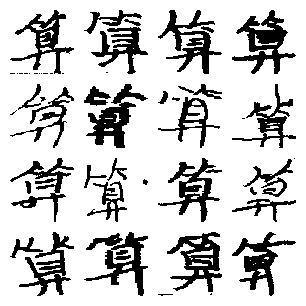 算算算算
算算算算
算算算算
算算算算